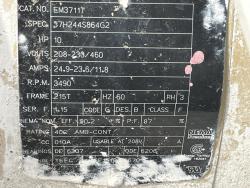 CAT. NO. EM3711T
SPEC. 37H244S864G2
HP 10
VOLTS 208-230/460
AMPS 24.9-23.6/11.8
R.P.M. 3490
FRAME 215T HZ 60 PH 3
SER. F. 1.15 CODE G DES. B CLASS F
NEMA NOM. EFF. 90.2 % P.F. 87 %
RATING 40C AMB-CONT
CC 010A USABLE AT 208V
DE 6307 ODE 6206
NEMA